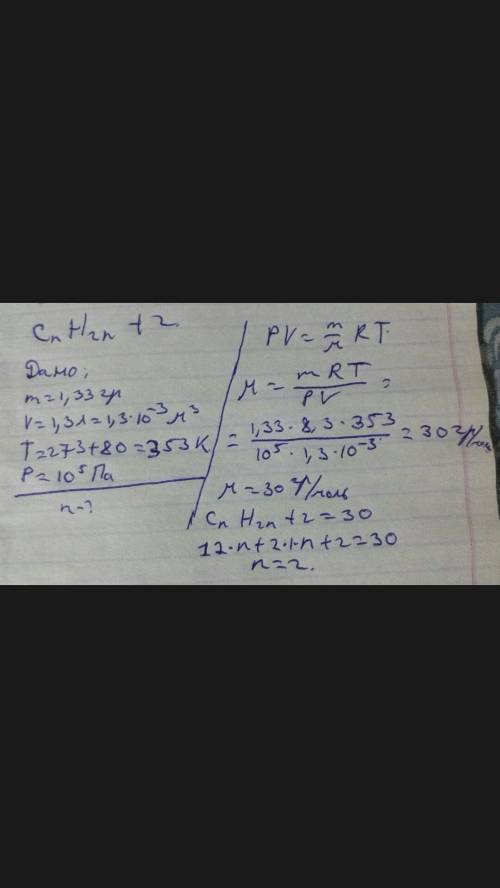 CnH2n+2
Дано:
m=1,33гр
V=1,3л=1,3·10⁻³м³
T=273+80=353K
P=10⁵Па
n-?
PV=m/μ RT.
μ=mRT/PV=
=1,33·8,3·353/10⁵·1,3·10⁻³=30г/моль
μ=30г/моль
CnH2n+2=30
12·n+2·1·n+2=30
n=2.